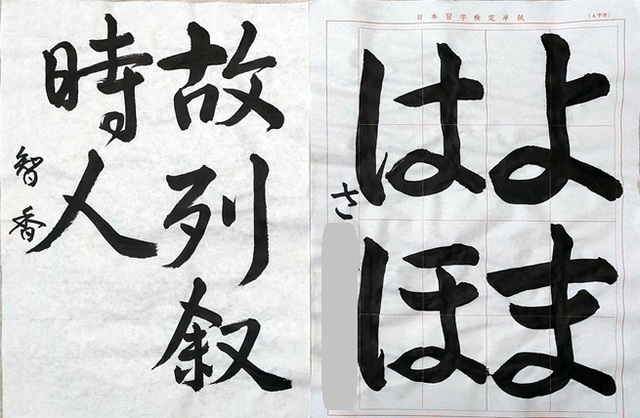 故列叙
時人
智香
日本習字検定半紙
(4字用)
よま
はほ
さ